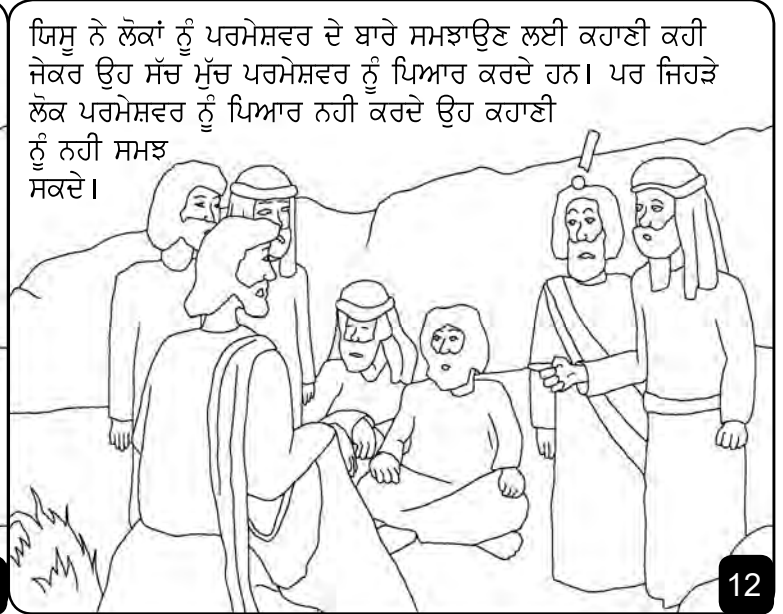 ਯਿਸੂ ਨੇ ਲੋਕਾਂ ਨੂੰ ਪਰਮੇਸ਼ਵਰ ਦੇ ਬਾਰੇ ਸਮਝਾਉਣ ਲਈ ਕਹਾਣੀ ਕਹੀ
ਜੇਕਰ ਉਹ ਸੱਚ ਮੁੱਚ ਪਰਮੇਸ਼ਵਰ ਨੂੰ ਪਿਆਰ ਕਰਦੇ ਹਨ। ਪਰ ਜਿਹੜੇ
ਲੋਕ ਪਰਮੇਸ਼ਵਰ ਨੂੰ ਪਿਆਰ ਨਹੀ ਕਰਦੇ ਉਹ ਕਹਾਣੀ
ਨੂੰ ਨਹੀ ਸਮਝ
ਸਕਦੇ।
12